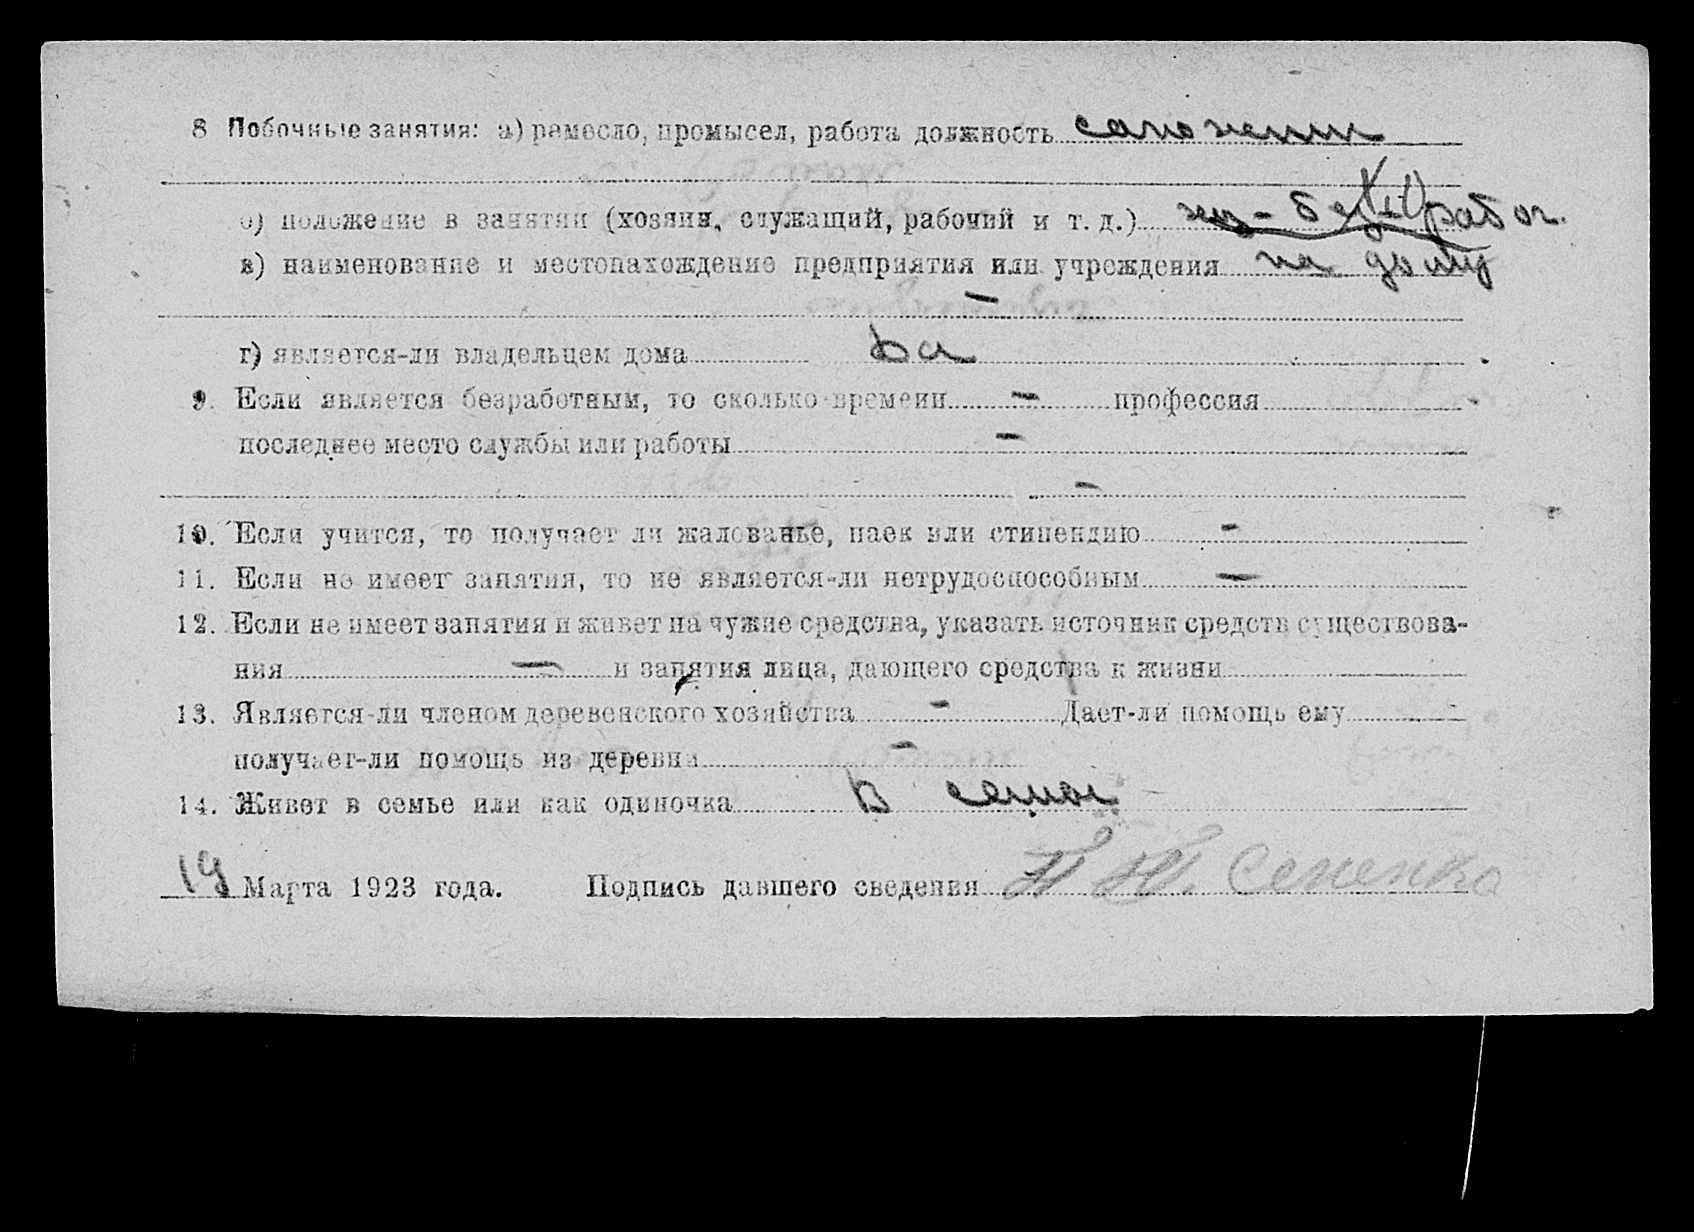 8 Побочные занятия: а) ремесло, промысел, работа должность сапожник
б) положение в занятии (хозяин, служащий, рабочий и т. д.) хоз - без рабоч.
в) наименование и местонахождение предприятия или учреждения на дому
—
г) является-ли владельцем дома Да
9. Если является безработным, то сколько времени — профессия
последнее место службы или работы —
—
10. Если учится, то получает ли жалованье, паек или стипендию -
11. Если не имеет занятия, то не является-ли нетрудоспособным —
12. Если не имеет занятия и живет на чужие средства, указать источник средств существова-
ния — и занятия лица, дающего средства к жизни
13. Является-ли членом деревенского хозяйства - Дает-ли помощь ему
получает-ли помощь из деревни -
14. Живет в семье или как одиночка В семье
19 Марта 1923 года. Подпись давшего сведения